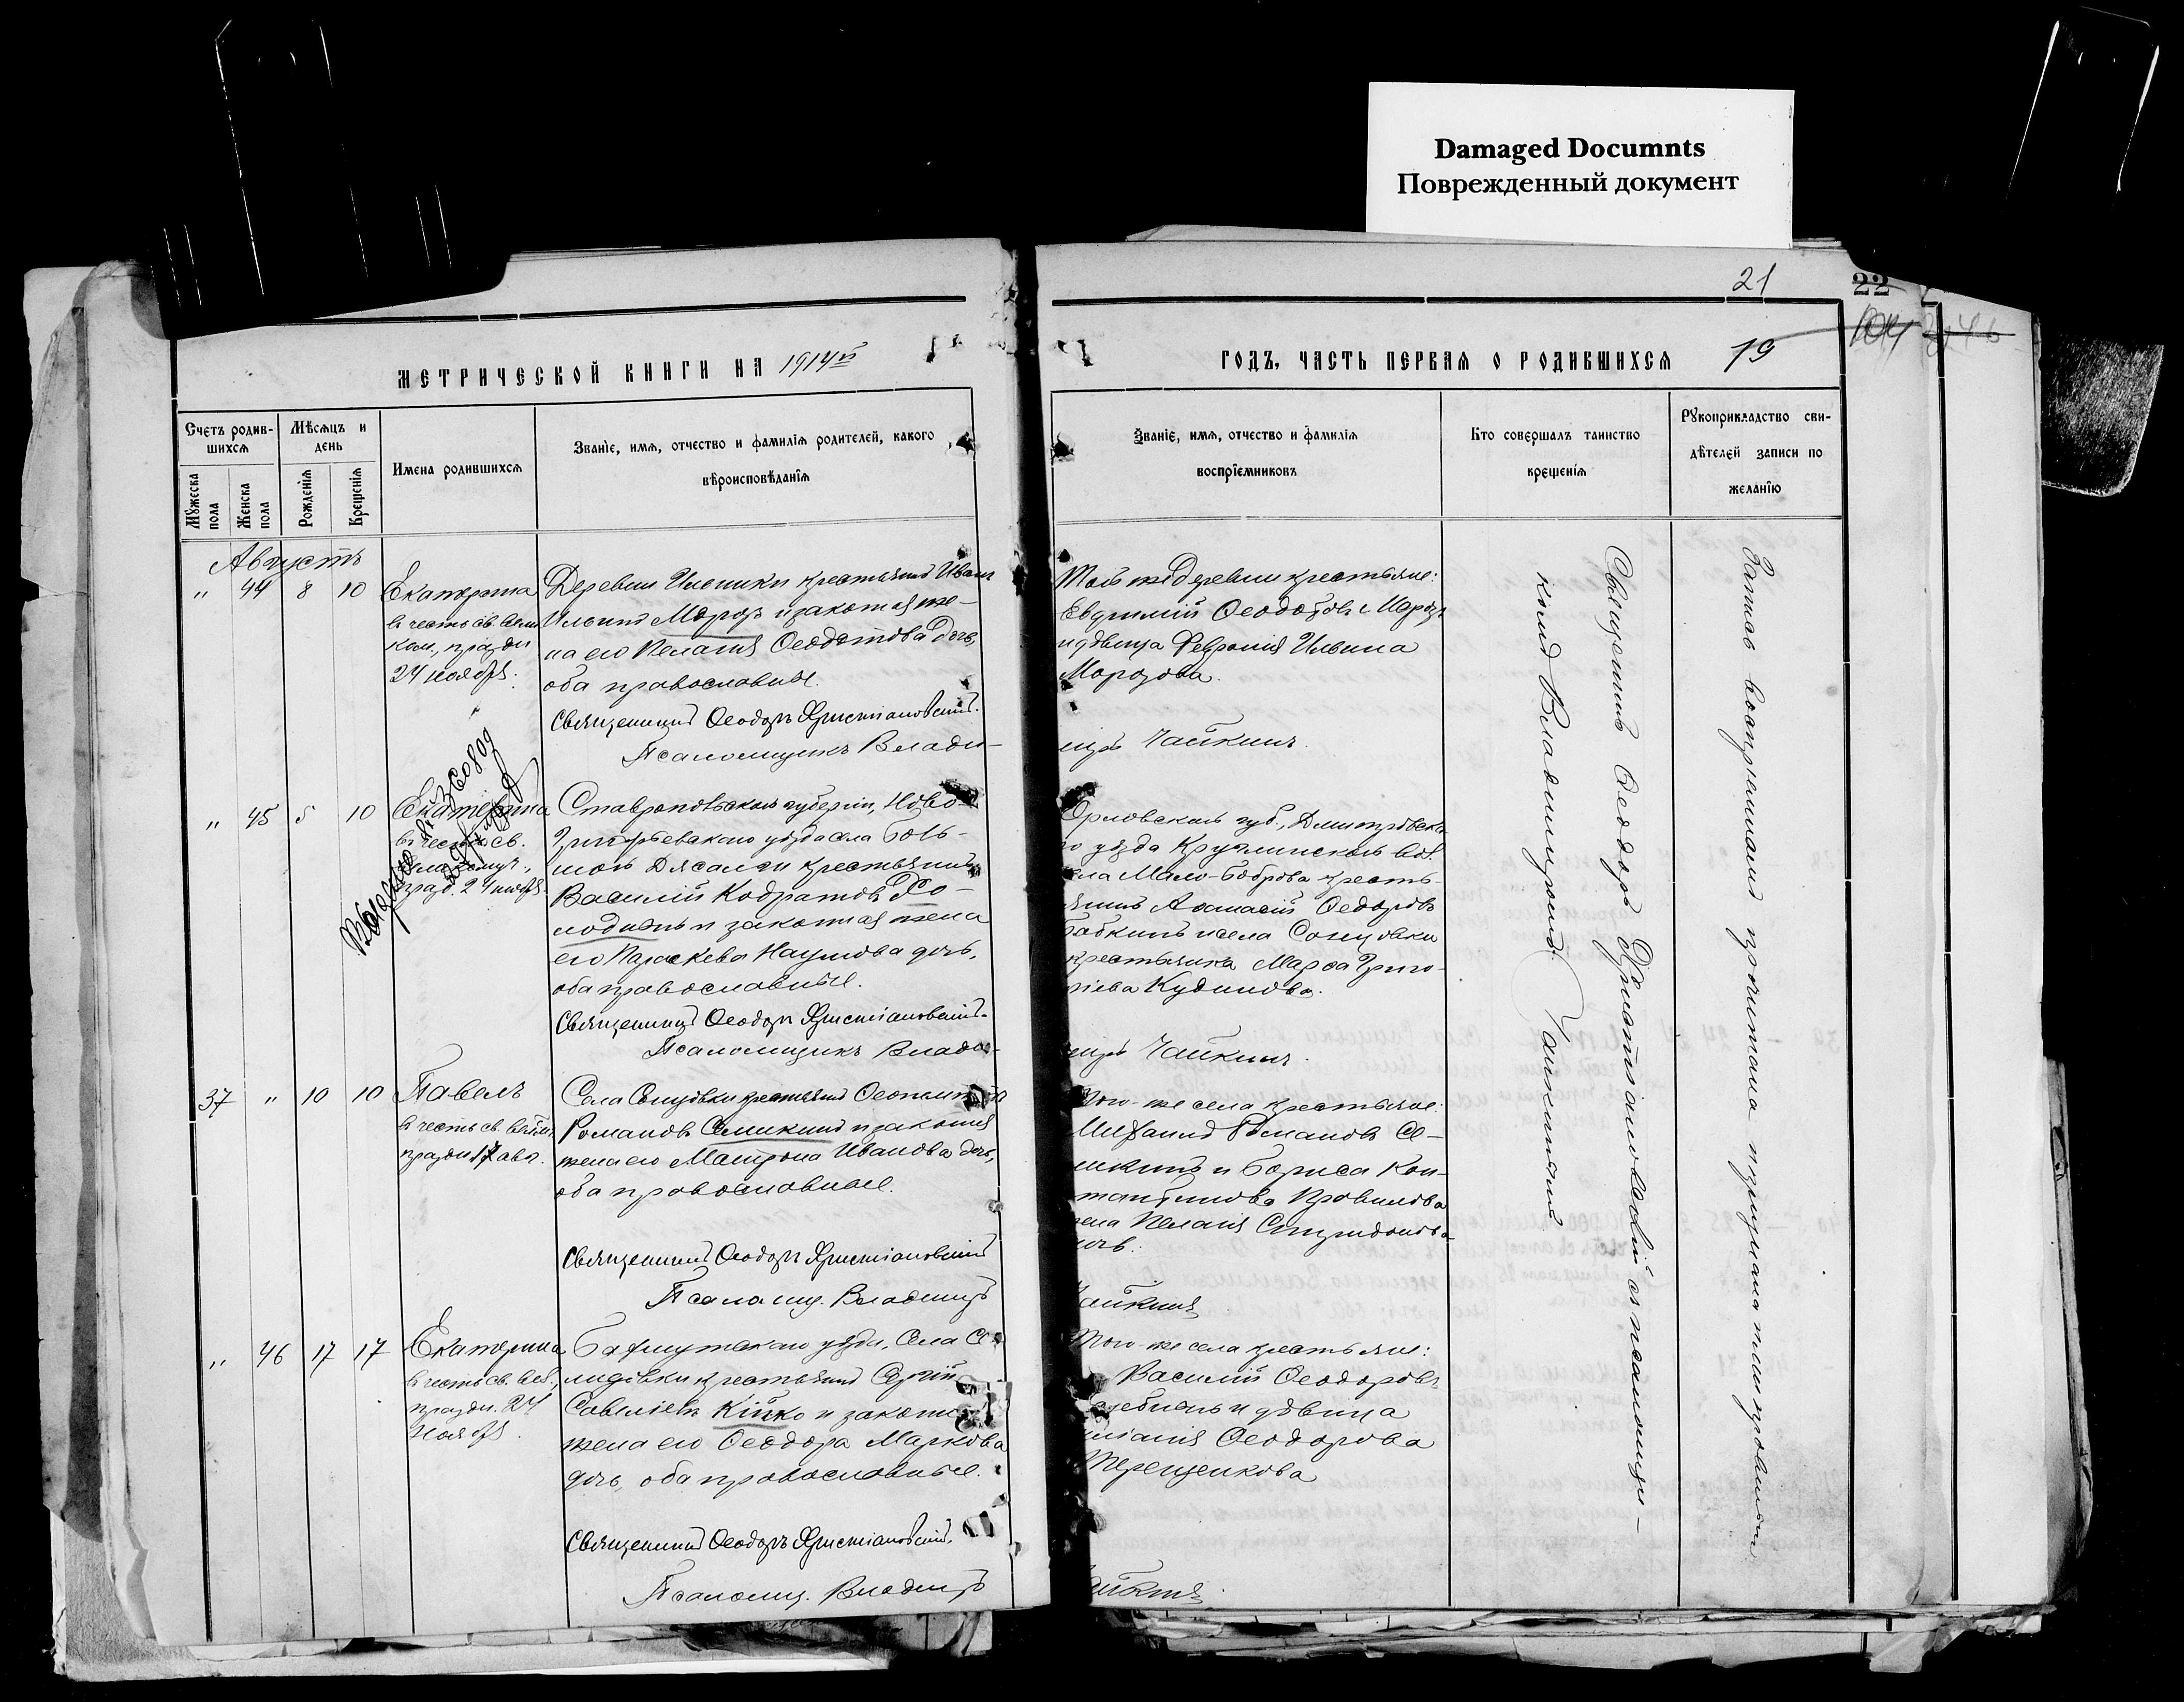 Damaged Documnts
Поврежденный документ
21
22
МЕТРИЧЕСКОЙ КНИГИ НА 1914й
ГОДЪ, ЧАСТЬ ПЕРВАЯ О РОДИВШИХСЯ
19
Счетъ родив-
шихся
Мужеска
пола
Женска
пола
Мѣсяцъ и
день
Рожденія
Крещенія
Имена родившихся
Званіе, имя, отчество и фамилія родителей, какого
вѣроисповѣданія
Званіе, имя, отчество и фамилія
воспріемниковъ
Кто совершалъ таинство
крещенія
Рукоприкладство сви-
дѣтелей записи по
желанію
Августъ
" 44 8 10
Екатерина
въ честь св. велик
мч., праздн
24 ноября.
Деревни Ильинки крестьянинъ Иванъ
Ильинъ Морозъ и законная же-
на его Пелагія Ѳеодотова дочь,
оба православные.
Священникъ Ѳеодоръ Христіановскій.
Псаломщикъ Влади-
Той же деревни крестьяне:
Евфимій Ѳеодотовъ Морозъ
и дѣвица Февронія Ильина
Морозова.
міръ Чайкинъ.
" 45 5 10
Екатерина
въ честь св.
празд. 24 ноября.
Ставропольской губерніи, Ново-
Григорьевскаго уѣзда села Боль-
шой Джалги крестьянинъ
Василій Кодратовъ Хо-
лодный и законная жена
его Параскева Наумова дочь,
оба православные.
Священникъ Ѳеодоръ Христіановскій.
Псаломщикъ Влади-
Орловской губ., Дмитровска-
го уѣзда Круглинской вол.
села Мало-Боброва кресть-
янинъ Аѳанасій Ѳедоровъ
Бабкинъ и села Сонцовки
крестьянка Марѳа Григо-
ріева Кудинова.
міръ Чайкинъ.
37 " 10 10
Павелъ
праздн 17 авг.
Села Сонцовки крестьянинъ Ѳеоктистъ
Романовъ Семикинъ и законная
жена его Матрона Иванова дочь,
оба православные.
Священникъ Ѳеодоръ Христіановскій
Псаломщ. Владиміръ
Того-же села крестьяне:
Михаилъ Романовъ Се-
микинъ и Бориса Кон-
стантинова
жена Пелагія Спиридонова
дочь.
Чайкинъ
" 46 17 17
Екатерина
въ честь св. вел.,
праздн. 24
ноября.
Бахмутскаго уѣзда, села Се-
лидовки крестьянинъ Сергій
Савеліевъ Кійко и законная
жена его Ѳеодора Маркова
дочь, оба православные.
Священникъ Ѳеодоръ Христіановскій.
Псаломщ. Владиміръ
Того-же села крестьяне:
Василій Ѳеодоровъ
и дѣвица
Ѳеодорова
Терещенкова
Чайкинъ
Священникъ Ѳеодоръ Христіановскій съ псаломщи-
комъ Владиміромъ Чайкинымъ